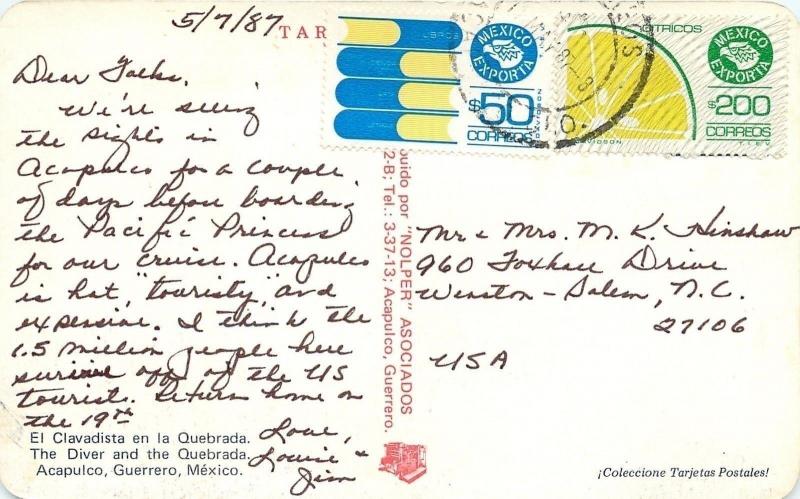 5/7/87
TAR
Dear Folks,
We're seeing
the sights in
Acapulco for a couple
of days before boarding
the Pacific Princess
for our cruise. Acapulco
is hot, "touristy," and
expensive. I think the
1.5 million people here
survive off of the US
tourist. Return home on
the 19th
Love,
Louise &
Jim
El Clavadista en la Quebrada.
The Diver and the Quebrada.
Acapulco, Guerrero, México.
buido por "NOLPER" ASOCIADOS
2-B; Tel.: 3-37-13; Acapulco, Guerrero.
LIBROS
MEXICO
EXPORTA
$50
CORREOS
DAVIDSON
CITRICOS
MEXICO
EXPORTA
$200
CORREOS
DAVIDSON
T.I.E.V.
Mr & Mrs. M. K. Hinshaw
960 Foxhall Drive
Winston-Salem, N.C.
27106
USA
¡Coleccione Tarjetas Postales!